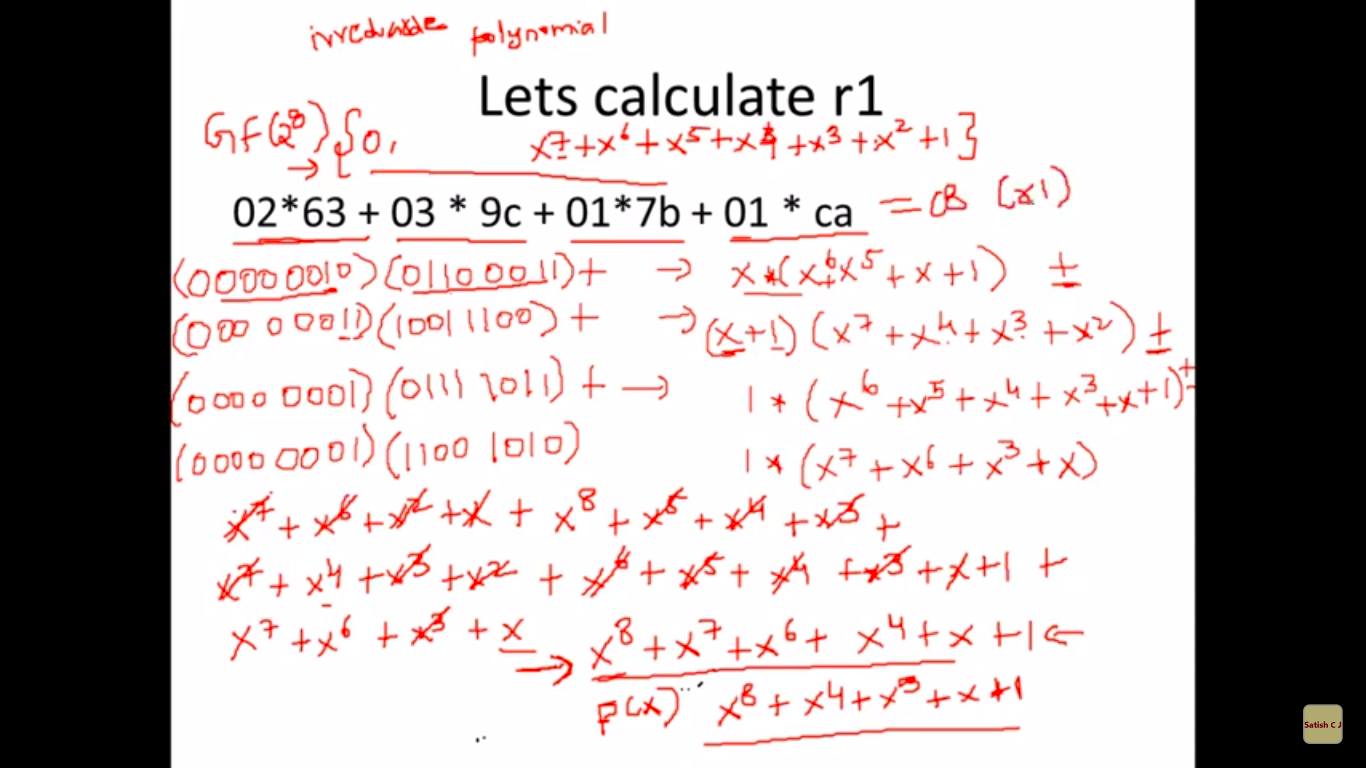 polynomial
Lets calculate r1
GF(2⁸) {0, x⁷ + x⁶ + x⁵ + x⁴ + x³ + x² + 1}
02*63 + 03 * 9c + 01*7b + 01 * ca =
(0000 0010) (0110 0011) + → x * (x⁶ + x⁵ + x + 1) +
(000 0 0011) (1001 1100) + → (x+1) (x⁷ + x⁴ + x³ + x²) +
(0000 0001) (0111 1011) + → 1 * (x⁶ + x⁵ + x⁴ + x³ + x + 1) +
(0000 0001) (1100 1010) 1 * (x⁷ + x⁶ + x³ + x)
x⁷ + x⁶ + x² + x + x⁸ + x⁵ + x⁴ + x³ +
x⁷ + x⁴ + x³ + x² + x⁶ + x⁵ + x⁴ + x³ + x + 1 +
x⁷ + x⁶ + x³ + x → x⁸ + x⁷ + x⁶ + x⁴ + x + 1 ←
P(x) x⁸ + x⁴ + x³ + x + 1
Satish C J